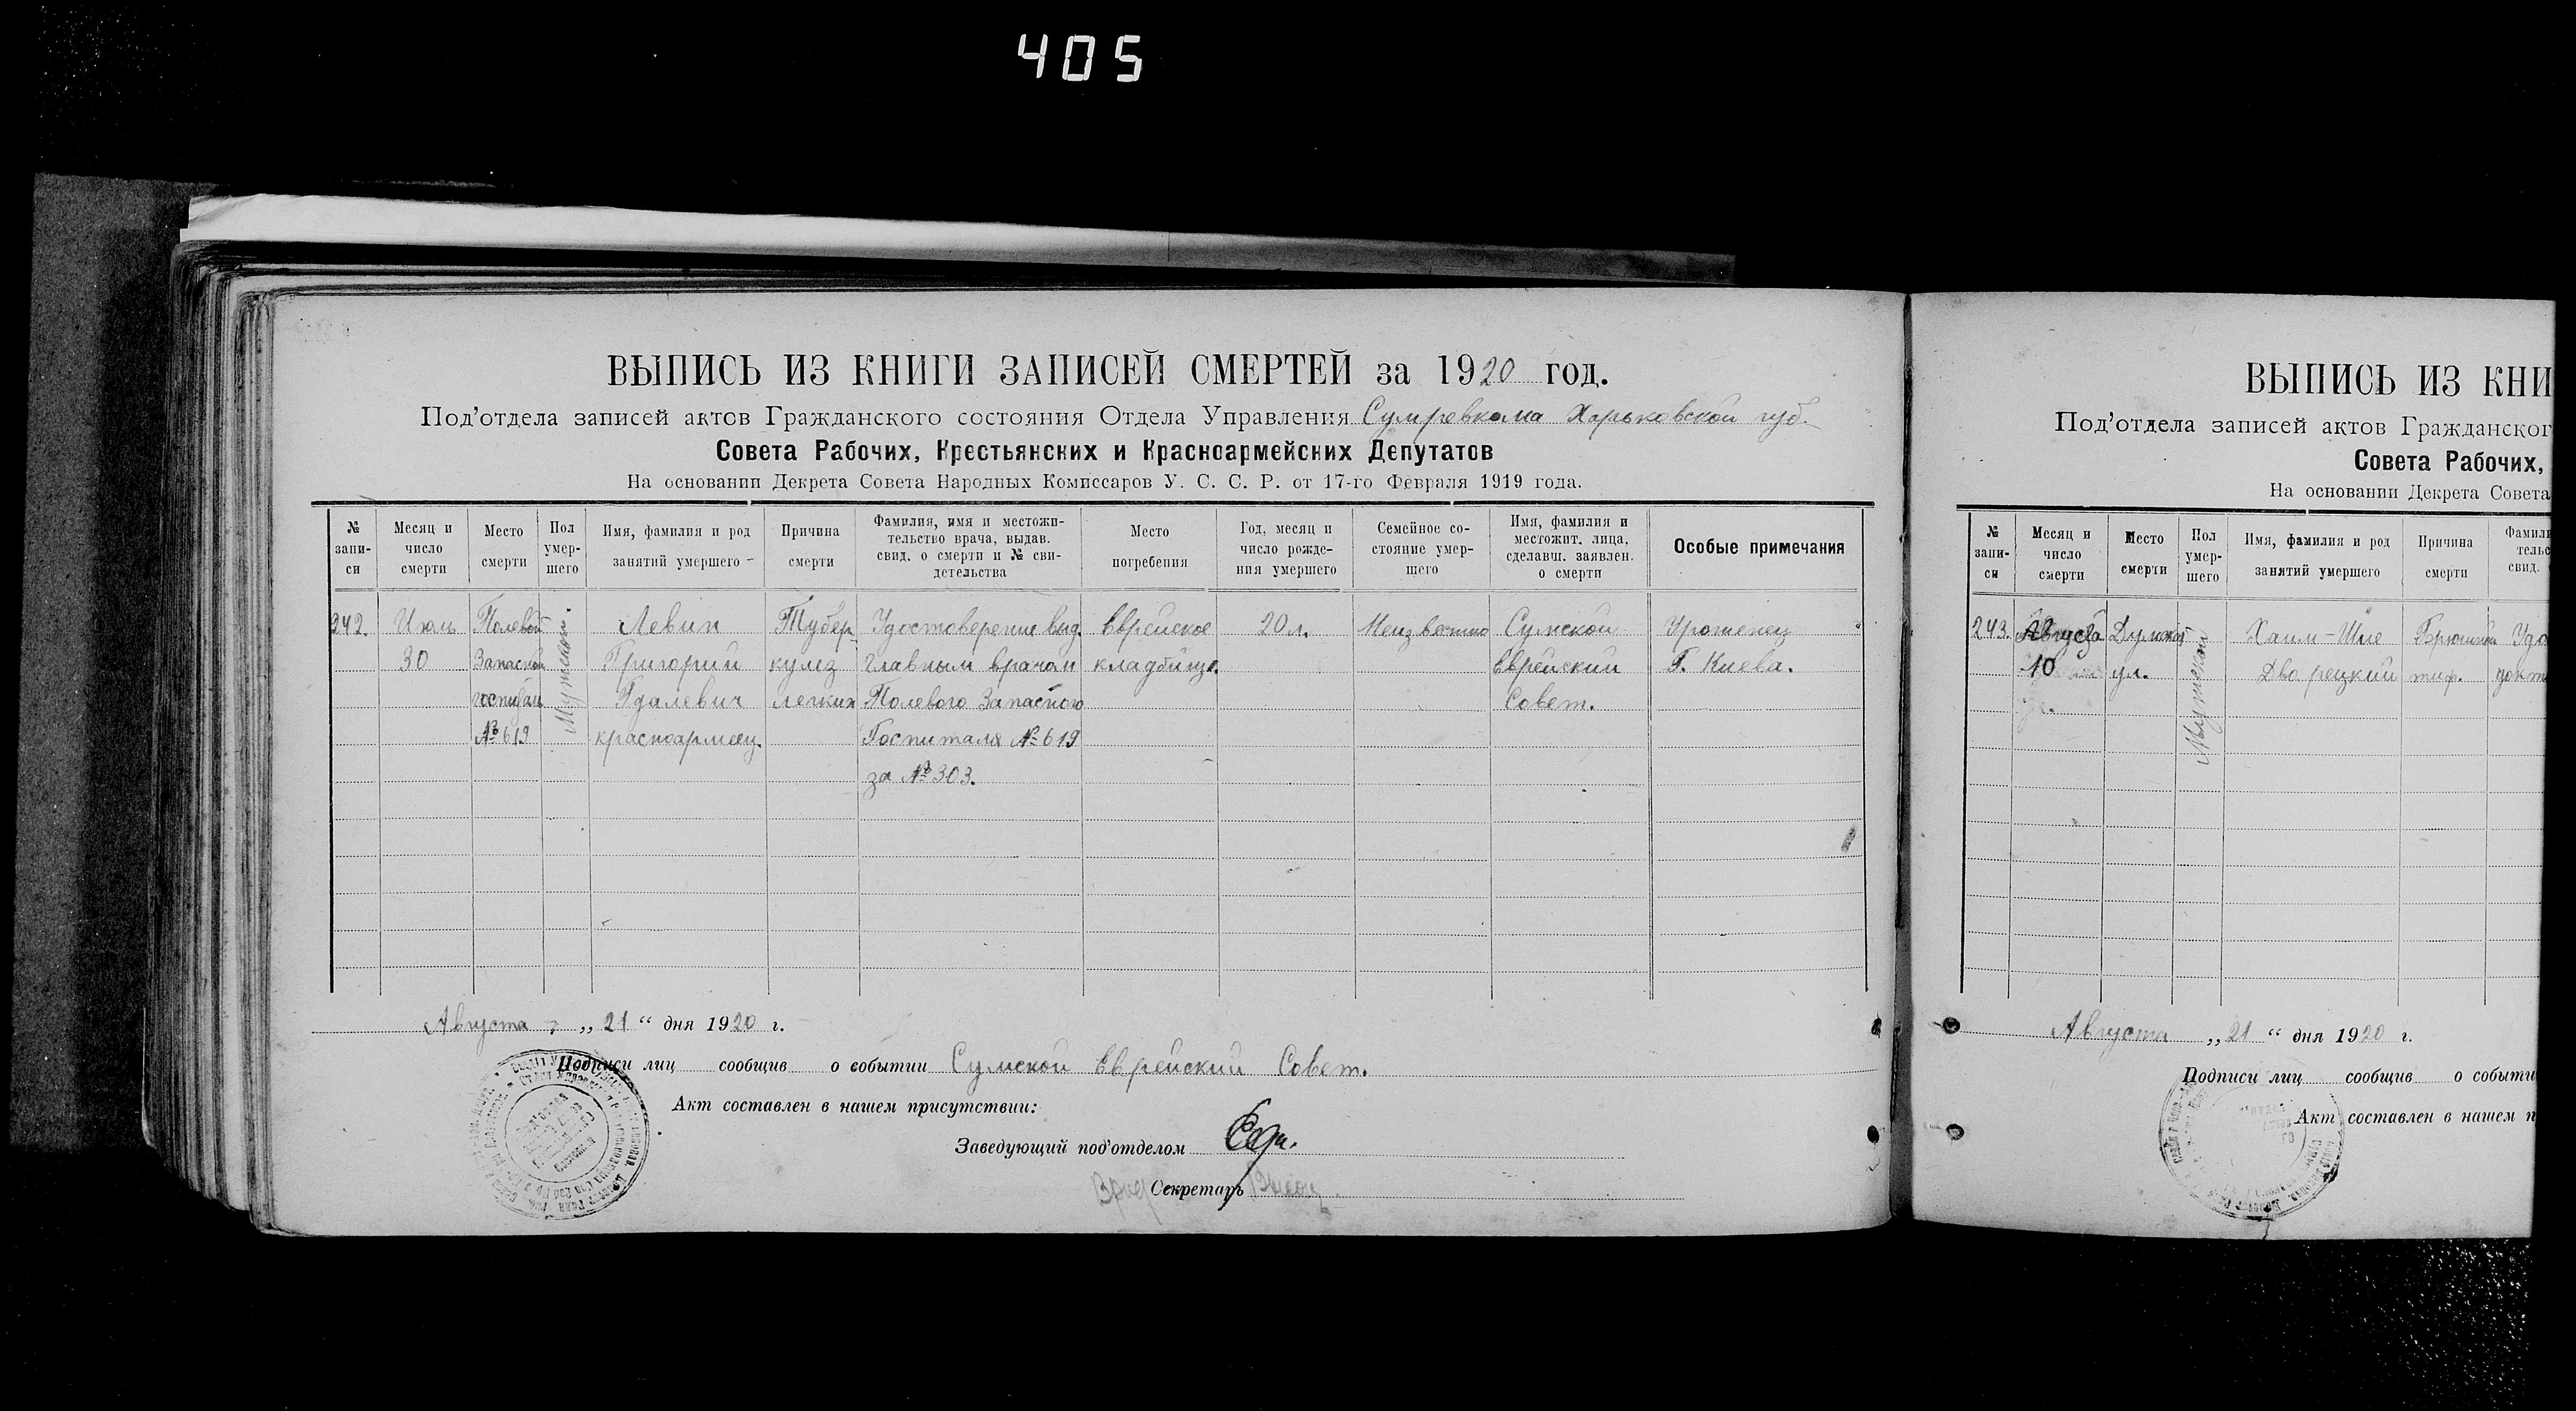 405
ВЫПИСЬ ИЗ КНИГИ ЗАПИСЕЙ СМЕРТЕЙ за 1920 год.
Под'отдела записей актов Гражданского состояния Отдела Управления Сумревкома Харьковской губ.
Совета Рабочих, Крестьянских и Красноармейских Депутатов
На основании Декрета Совета Народных Комиссаров У. С. С. Р. от 17-го Февраля 1919 года.
№ запи-
си
Месяц и
число
смерти
Место
смерти
Пол
умер-
шего
Имя, фамилия и род
занятий умершего
Причина
смерти
Фамилия, имя и местожи-
тельство врача, выдав.
свид. о смерти и № сви-
детельства
Место
погребения
Год, месяц и
число рожде-
ния умершего
Семейное со-
стояние умер-
шего
Имя, фамилия и
местожит. лица,
сделавш. заявлен.
о смерти
Особые примечания
242.
Июль
30
Полевой
Запасной
госпиталь
№ 619
Мужской
Левин
Григорий
Гдалевич
красноармеец.
Тубер
кулез
легких
Удостоверение выд.
главным врачом
Полевого Запасного
Госпиталя № 619
за № 303.
Еврейское
кладбище.
20 л.
Неизвестно
Сумской
Еврейский
Совет.
Уроженец
Г. Киева.
Августа „ 21 “ дня 1920 г.
Подписи лиц сообщив о событии Сумской Еврейский Совет.
Акт составлен в нашем присутствии:
Заведующий под'отделом
Секретарь
ВЫПИСЬ ИЗ КНИ
Под'отдела записей актов Гражданског
Совета Рабочих,
На основании Декрета Совета
№
запи-
си
Месяц и
число
смерти
Место
смерти
Пол
умер-
шего
Имя, фамилия и род
занятий умершего
Причина
смерти
Фамили
тельс
свид.
243.
Августа
10
Думской
ул.
Мужской
Хаим-Шие
Дворецкий
Брюшной
тиф.
Удо
докт
Августа „ 21 “ дня 1920 г.
Подписи лиц сообщив о событи
Акт составлен в нашем п